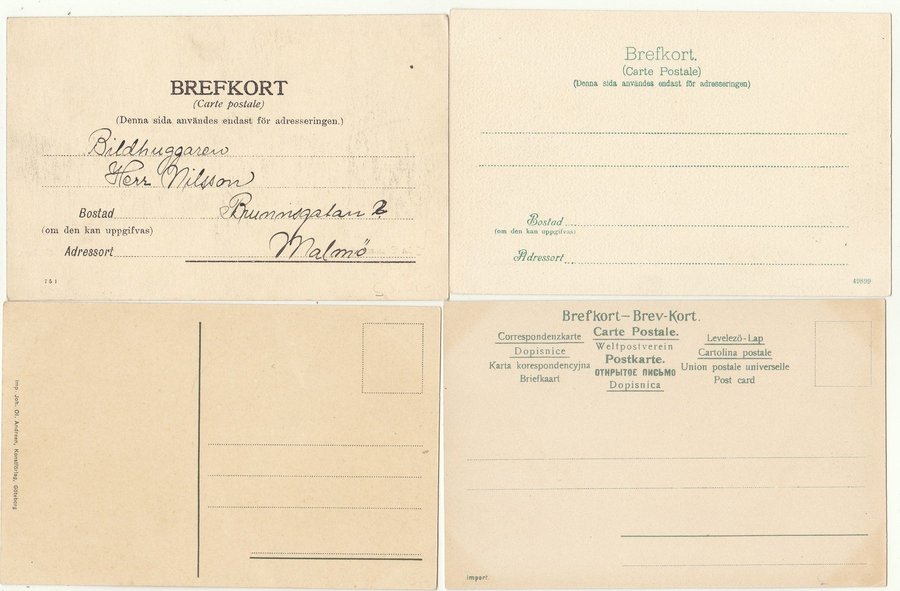 BREFKORT
(Carte postale)
(Denna sida användes endast för adresseringen.)
Bildhuggaren
Herr Nilsson
Bostad Brunnsgatan 2
(om den kan uppgifvas)
Adressort Malmö
151
Brefkort.
(Carte Postale)
(Denna sida användes endast för adresseringen)
Bostad
(om den kan uppgifvas)
Adressort
49899
Imp. Joh. Ol. Andreen, Konstförlag, Göteborg
Brefkort–Brev-Kort.
Correspondenzkarte Carte Postale. Levelező-Lap
Dopisnice Weltpostverein Cartolina postale
Karta korespondencyjna Postkarte. Union postale universelle
Briefkaart ОТКРЫТОЕ ПИСЬМО Post card
Dopisnica
Import.